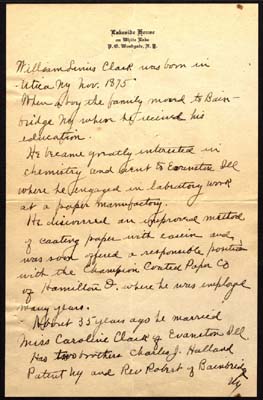 Lakeside House
on White Lake
P. O. Woodgate, N. Y.
William Linius Clark was born in
Utica Ny Nov. 1875
When a boy the family moved to Bain-
bridge Ny where he received his
education.
He became greatly interested in
chemistry and went to Evanston Ill
where he engaged in laboratory work
at a paper manufactory.
He discovered an improved method
of coating paper with casein and
was soon offered a responsible position
with the Champion Coated Paper Co
of Hamilton O. where he was employed
many years.
About 35 years ago he married
Miss Caroline Clark of Evanston Ill
Has two brothers Charles J. Holland
Patent Ny and Rev Robert of Bainbridge
Ny